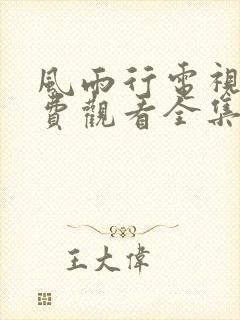 風雨行電視
費觀看全集
王大偉